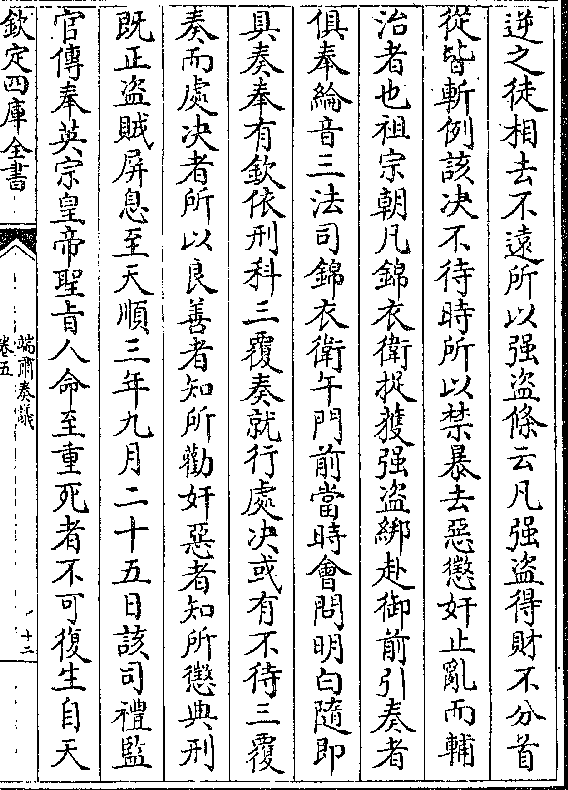 逆之徒相去不遠所以强盗條云凡强盗得財不分首
從皆斬例該决不待時所以禁暴去惡懲奸止亂而輔
治者也祖宗朝凡錦衣衛捉獲强盗綁赴御前引奏者
俱奉綸音三法司錦衣衛午門前當時會問明白隨即
具奏奉有欽依刑科三覆奏就行處决或有不待三覆
奏而處决者所以良善者知所勸奸惡者知所懲典刑
既正盗賊屏息至天順三年九月二十五日該司禮監
官傳奉英宗皇帝聖旨人命至重死者不可復生自天
欽定四庫全書
端肅奏議
卷五
十二